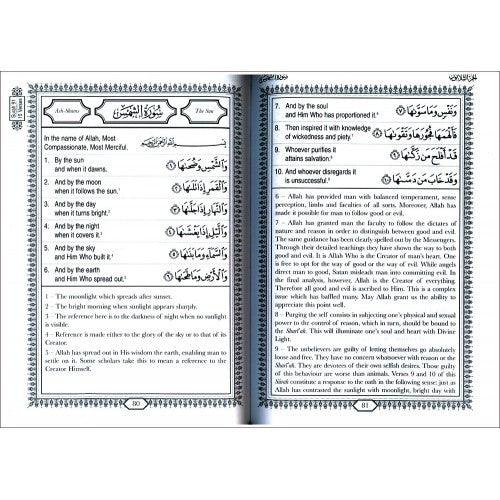 Surah 91
15 Verses
Ash-Shams
سُورَةُ الشَّمْسِ
The Sun
In the name of Allah, Most
Compassionate, Most Merciful.
بِسْمِ اللَّهِ الرَّحْمَٰنِ الرَّحِيمِ
1. By the sun
and when it dawns.
وَالشَّمْسِ وَضُحَىٰهَا ﴿١﴾
2. And by the moon
when it follows the sun.¹
وَالْقَمَرِ إِذَا تَلَىٰهَا ﴿٢﴾
3. And by the day
when it turns bright.²
وَالنَّهَارِ إِذَا جَلَّىٰهَا ﴿٣﴾
4. And by the night
when it covers it.³
وَاللَّيْلِ إِذَا يَغْشَىٰهَا ﴿٤﴾
5. And by the sky
and Him Who built it.⁴
وَالسَّمَاءِ وَمَا بَنَىٰهَا ﴿٥﴾
6. And by the earth
and Him Who spread out.⁵
وَالْأَرْضِ وَمَا طَحَىٰهَا ﴿٦﴾
1 – The moonlight which spreads after sunset.
2 – By the daytime when sunlight appears sharply.
3 – The reference here is to the darkness of night when no sunlight
is visible.
4 – Reference is made either to the glory of the sky or to that of its
Creator.
5 – Allah has spread out in His wisdom the earth, enabling man to
settle on it. Some scholars take this to mean a reference to the
Creator Himself.
80
7. And by the soul
and Him Who has proportioned it.⁶
وَنَفْسٍ وَمَا سَوَّىٰهَا ﴿٧﴾
8. Then inspired it with knowledge
of wickedness and piety.⁷
فَأَلْهَمَهَا فُجُورَهَا وَتَقْوَىٰهَا ﴿٨﴾
9. Whoever purifies it
attains salvation.⁸
قَدْ أَفْلَحَ مَن زَكَّىٰهَا ﴿٩﴾
10. And whoever disregards it
is unsuccessful.⁹
وَقَدْ خَابَ مَن دَسَّىٰهَا ﴿١٠﴾
6 – Allah has provided man with balanced temperament, sense
perception, limbs and faculties of all sorts. Moreover, Allah has
made it possible for man to follow good or evil.
7 – Allah has granted man the faculty to follow the dictates of
nature and reason in order to distinguish between good and evil.
The same guidance has been clearly spelled out by the Messengers.
Through their detailed teachings they have shown the way to both
good and evil. It is Allah Who is the Creator of man's heart. One
is free to opt for the way of good or the way of evil. While angels
direct man to good, Satan misleads man into committing evil. In
the final analysis, however, Allah is the Creator of everything.
Therefore all good and evil is ascribed to Him. This is a complex
issue which has baffled many. May Allah grant us the ability to
appreciate this point well.
8 – Purging the self consists in subjecting one's physical and sensual
power to the control of reason, which in turn, should be bound to
the Sharī'ah. This will illuminate one's soul and heart with Divine
Light.
9 – The unbelievers are guilty of letting themselves go absolutely
loose and free. They have no concern whatsoever with reason or the
Sharī'ah. They are devotees of their own selfish desires. Those guilty
of this behaviour are worse than animals. Verses 9 and 10 of this
Sūrah constitute a response to the oath in the following sense: just as
Allah has contrasted the sunlight with moonlight, bright day with
81